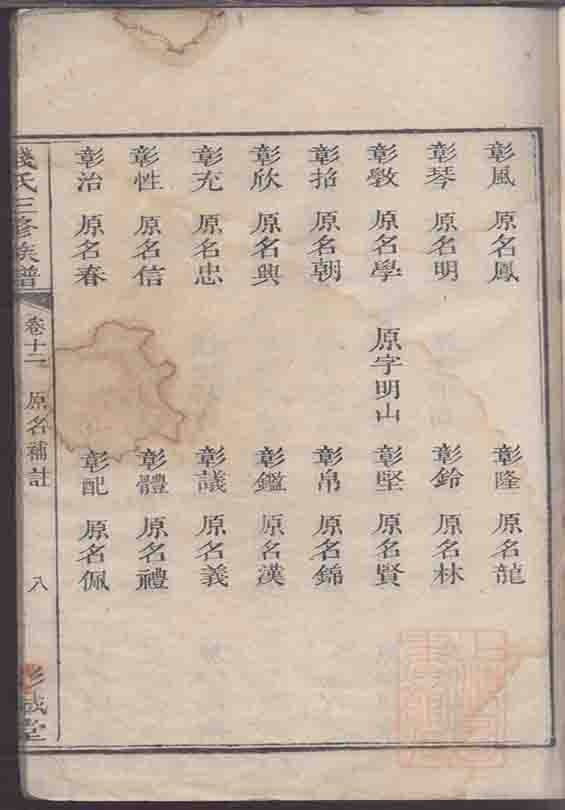 彰風 原名鳳 彰隆 原名龍
彰琴 原名明 彰鈴 原名林
彰斅 原名學 原字明山 彰堅 原名賢
彰招 原名朝 彰帛 原名錦
彰欣 原名興 彰鑑 原名漢
彰充 原名忠 彰議 原名義
彰性 原名信 彰體 原名禮
彰治 原名春 彰配 原名佩
錢氏三修族譜 卷十二 原名補註 八 彭城堂